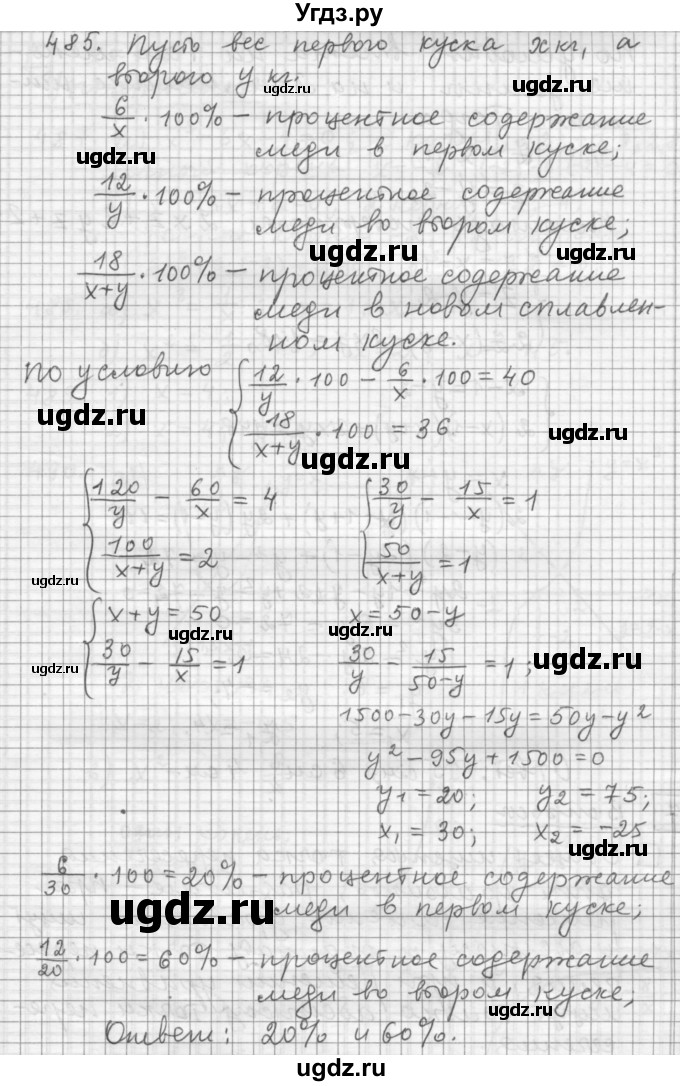 Угдз.ру
485. Пусть вес первого куска x кг, а
второго y кг.
ugdz.ru
6/x · 100% – процентное содержание
меди в первом куске;
ugdz.ru ugdz.ru
12/y · 100% – процентное содержание
меди во втором куске;
ugdz.ru ugdz.ru
18/(x+y) · 100% – процентное содержание
меди в новом сплавлен-
ugdz.ru
ном куске.
По условию { 12/y · 100 – 6/x · 100 = 40
ugdz.ru ugdz.ru
18/(x+y) · 100 = 36.
ugdz.ru
{ 120/y – 60/x = 4 { 30/y – 15/x = 1
100/(x+y) = 2 50/(x+y) = 1
ugdz.ru ugdz.ru
{ x+y = 50 x = 50–y
ugdz.ru ugdz.ru
30/y – 15/x = 1 30/y – 15/(50–y) = 1;
ugdz.ru ugdz.ru
1500–30y–15y=50y–y²
y²–95y+1500=0
y1 = 20; y2 = 75;
ugdz.ru
x1 = 30; x2 = –25
ugdz.ru
6/30 · 100 = 20% – процентное содержание
ugdz.ru
меди в первом куске;
12/20 · 100 = 60% – процентное содержание
ugdz.ru
меди во втором куске;
ugdz.ru
Ответ: 20% и 60%.
ugdz.ru
ugdz.ru